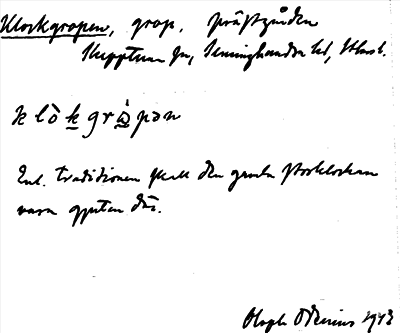 Klockgropen, grop, prästgården
Skepptuna sn, Seminghundra hd, Uppl.
klòkgròpən
Enl. traditionen skall den gamla storklockan
vara gjuten där.
Olof Odenius 1943